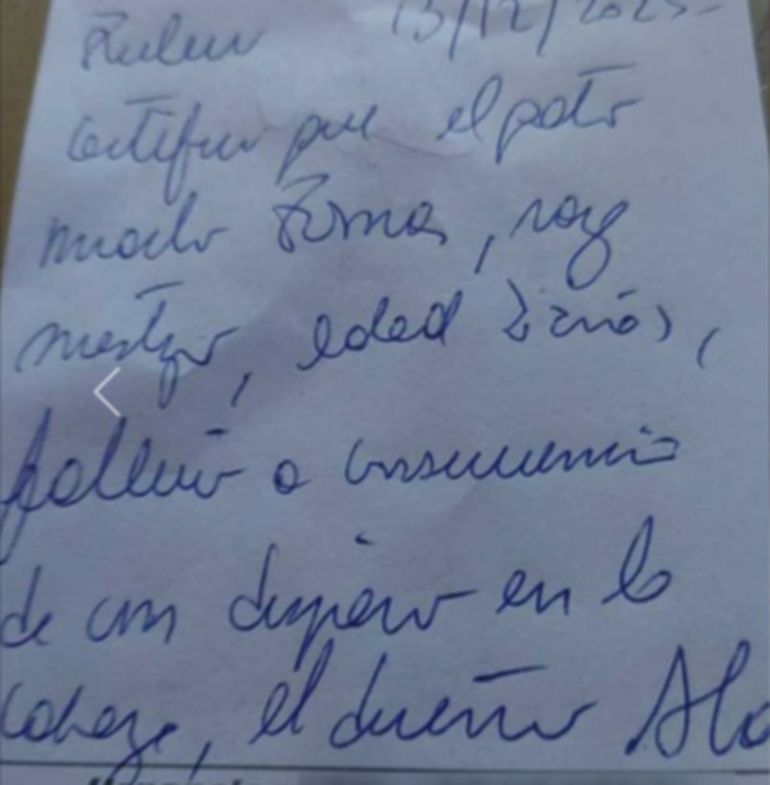 13/12/2025-
Certifico que el gato
macho Tomas, raza
mestizo, edad 2 años,
fallecio a consecuencia
de un disparo en la
cabeza, el dueño Alo